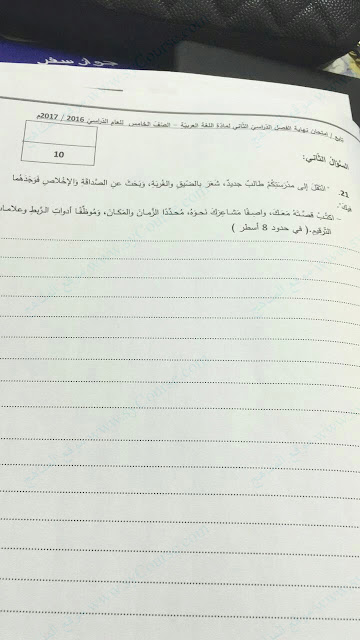 جواز سفر
تابع / إمتحان نهاية الفصل الدراسي الثاني لمادة اللغة العربية – الصف الخامس للعام الدراسي 2016 / 2017م
10
السؤال الثاني:
21. " انتَقَلَ إلى مَدْرَستِكُمْ طالبٌ جديدٌ، شَعَرَ بالضيقِ والغُربَة، وبَحَثَ عنِ الصَّداقةِ والإخلاصِ فَوَجَدَهُما
فيكَ".
– اكتُبْ قِصَّـتَهُ مَعَـكَ، واصِـفًا مَشـاعِرَكَ نَحـوَهُ، مُحـدِّدًا الزَّمـان والمكـان، ومُوظِّفًـا أدوات الرَّبطِ وعلامـات
التَّرقيم.( في حدود 8 أسطر )